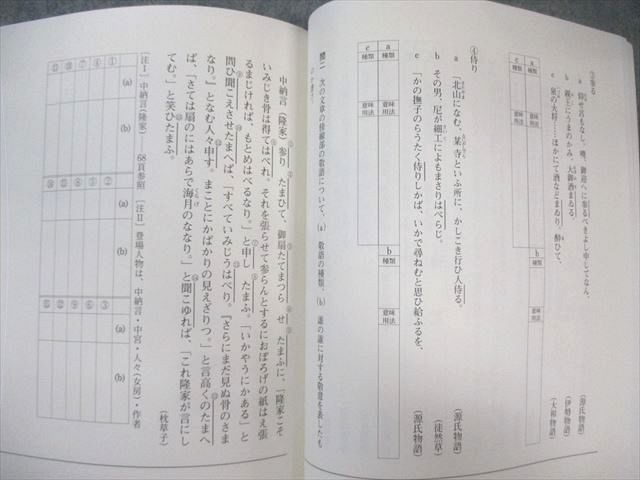 ③参る
a 仰せ言もなし。殿、御迎へに参るべきよし申してなん。
(源氏物語)
b 親王にうまのかみ、大御酒まゐる。
(伊勢物語)
c 泉の大将……ほかにて酒などまゐり、酔ひて、
(大和物語)
a
種類
意味用法
b
種類
意味用法
c
種類
意味用法
④侍り
a 「北山になむ、某寺といふ所に、かしこき行ひ人侍る。
(源氏物語)
b その男、尼が細工によもまさりはべらじ。
(徒然草)
c 「かの撫子のらうたく侍りしかば、いかで尋ねむと思ひ給ふるを、
(源氏物語)
a
種類
意味用法
b
種類
意味用法
c
種類
意味用法
問二 次の文章の傍線部の敬語について、(a) 敬語の種類、(b) 誰の誰に対する敬意を表したも
のか書け。
中納言(隆家)参り たまひて、御扇たてまつら せ たまふに、「隆家こそ
いみじき骨は得てはべれ。それを張らせて参らんとするにおぼろげの紙はえ張
るまじければ、もとめはべるなり。」と申し たまふ。「いかやうにかある」と
問ひ聞こえさせたまへば、「すべていみじうはべり。『さらにまだ見ぬ骨のさま
なり。』となむ人々申す。まことにかばかりの見えざりつ。」と言高くのたまへ
ば、「さては扇のにはあらで海月のななり。」と聞こゆれば、「これ隆家が言にし
てむ。」と笑ひたまふ。
(枕草子)
[注Ⅰ] 中納言(隆家) 68頁参照 [注Ⅱ] 登場人物は、中納言・中宮・人々(女房)・作者
(a)
(b)
(a)
(b)
(a)
(b)